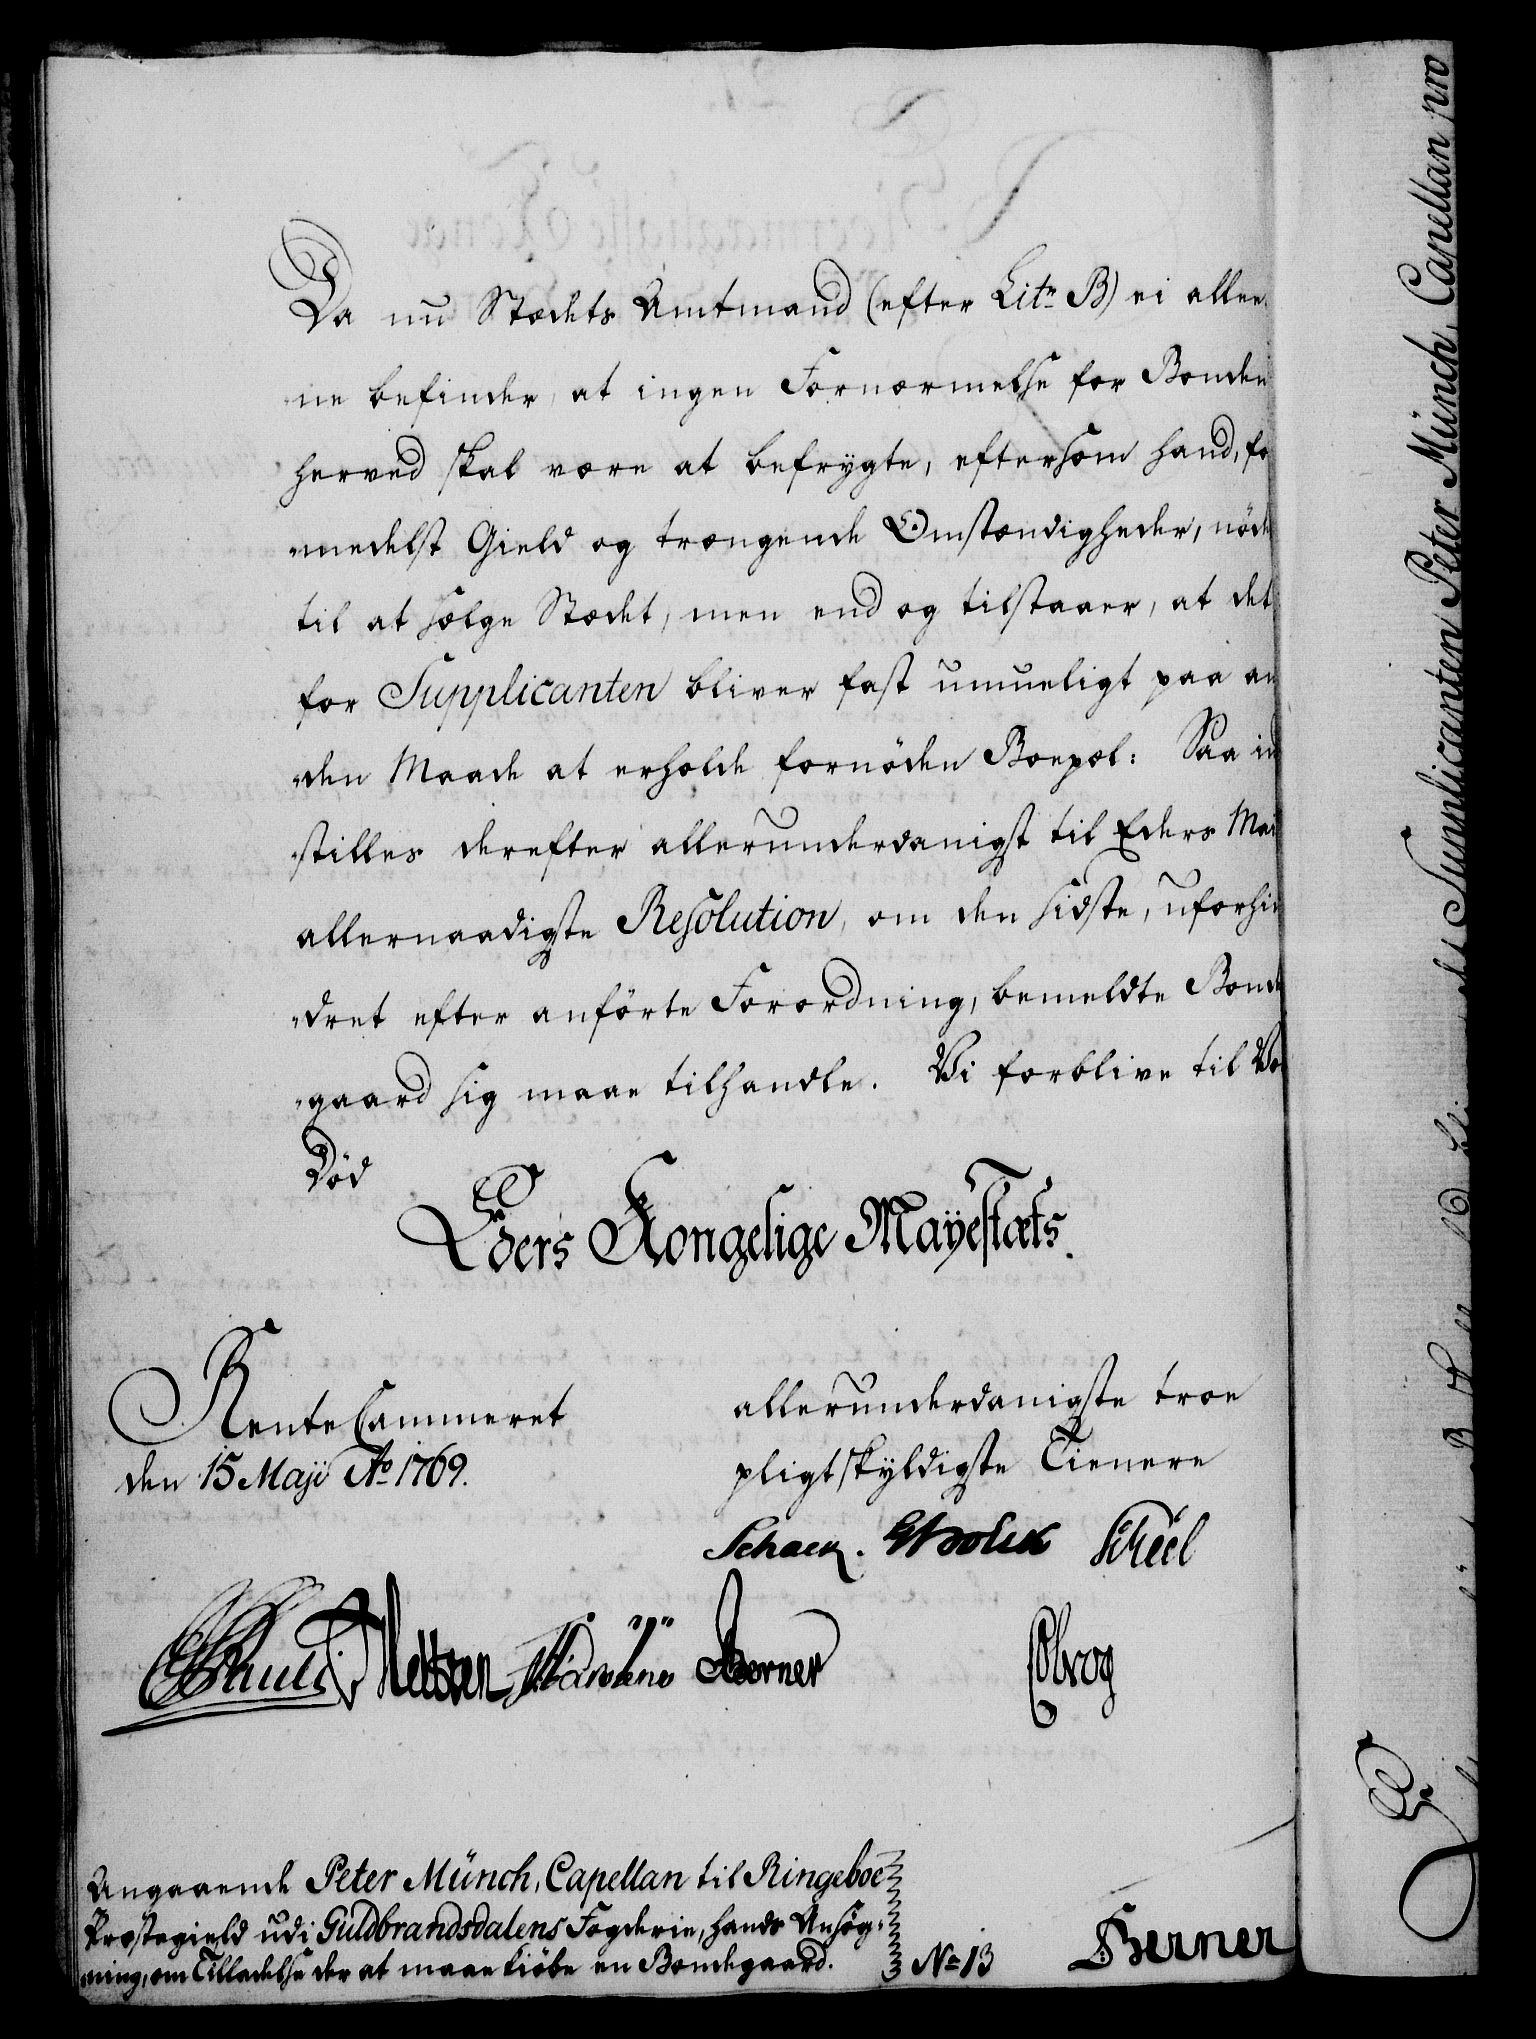 Da nu Stædets Amtmand (efter Litr B) ei allee,
ne befinder, at ingen Fornærmelse for Bonden
herved skal være at befrygte, eftersom hand, fo
medelst Gield og trængende Omstændigheder, nöde
til at sælge Stædet, men end og tilstaaer, at det
for Supplicanten bliver fast umueligt paa an
den Maade at erholde fornöden Boepæl: Saa in
stilles derefter allerunderdanigst til Eders Mai
allernaadigste Resolution, om den sidste, uforhin
dret efter anförte Forordning, bemeldte Bonde
gaard sig maae tilhandle. Vi forblive til Vo
Död
Eders Kongelige Mayestæts.
RenteCammeret
den 15 Maji Ao 1769.
allerunderdanigste troe
pligtskyldigste Tienere
Schack. Scheel
Berner
Angaaende Peter Münch, Capellan til Ringeboe
Præstegield udi Guldbrandsdalens Fogderie, hands Ansög,
ning, om Tilladelse der at maae kiöbe en Bondegaard.
No 13
Berner
Supplicanten Peter Münch, Capellan pro